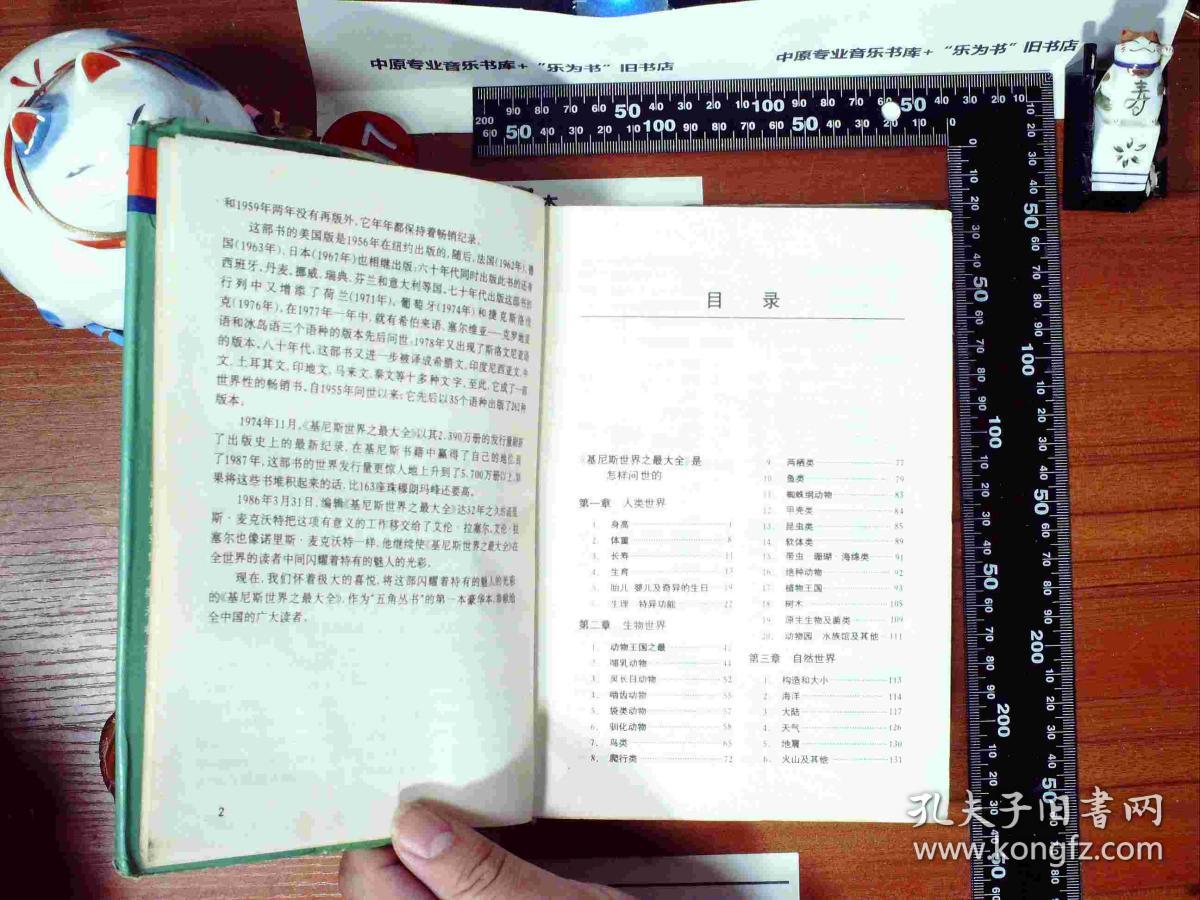 中原专业音乐书库+ “乐为书” 旧书店
中原专业音乐书库+ “乐为书” 旧书店
寿
本
和1959年两年没有再版外,它年年都保持着畅销纪录。
这部书的美国版是1956年在纽约出版的,随后,法国(1962年)、德
国(1963年)、日本(1967年)也相继出版;六十年代同时出版此书的还有
西班牙、丹麦、挪威、瑞典、芬兰和意大利等国,七十年代出版这部书的
行列中又增添了荷兰(1971年)、葡萄牙(1974年)和捷克斯洛伐
克(1976年),在1977年一年中,就有希伯来语、塞尔维亚——克罗地亚
语和冰岛语三个语种的版本先后问世。1978年又出现了斯洛文尼亚语
的版本,八十年代,这部书又进一步被译成希腊文、印度尼西亚文、中
文、土耳其文、印地文、马来文、泰文等十多种文字,至此,它成了一部
世界性的畅销书,自1955年问世以来;它先后以35个语种出版了262种
版本。
1974年11月,《基尼斯世界之最大全》以其2,390万册的发行量刷新
了出版史上的最新纪录,在基尼斯书籍中赢得了自己的地位;到
了1987年,这部书的世界发行量更惊人地上升到了5,700万册以上,如
果将这些书堆积起来的话,比163座珠穆朗玛峰还要高。
1986年3月31日,编辑《基尼斯世界之最大全》达32年之久的诺里
斯·麦克沃特把这项有意义的工作移交给了艾伦·拉塞尔,艾伦·拉
塞尔也像诺里斯·麦克沃特一样,他继续使《基尼斯世界之最大全》在
全世界的读者中间闪耀着特有的魅人的光彩。
现在,我们怀着极大的喜悦,将这部闪耀着特有的魅人的光彩
的《基尼斯世界之最大全》,作为“五角丛书”的第一本豪华本,奉献给
全中国的广大读者。
2
目 录
《基尼斯世界之最大全》是
怎样问世的
第一章 人类世界
1. 身高 1
2. 体重 8
3. 长寿 11
4. 生育 13
5. 胎儿 婴儿及奇异的生日 19
6. 生理 特异功能 22
第二章 生物世界
1. 动物王国之最 42
2. 哺乳动物 44
3. 灵长目动物 52
4. 啮齿动物 55
5. 袋类动物 57
6. 驯化动物 58
7. 鸟类 65
8. 爬行类 72
9. 两栖类 77
10. 鱼类 79
11. 蜘蛛纲动物 83
12. 甲壳类 84
13. 昆虫类 85
14. 软体类 89
15. 带虫 珊瑚·海绵类 91
16. 绝种动物 92
17. 植物王国 93
18. 树木 105
19. 原生生物及菌类 109
20. 动物园 水族馆及其他 111
第三章 自然世界
1. 构造和大小 113
2. 海洋 114
3. 大陆 117
4. 天气 126
5. 地震 130
6. 火山及其他 131
孔夫子旧书网
www.kongfz.com